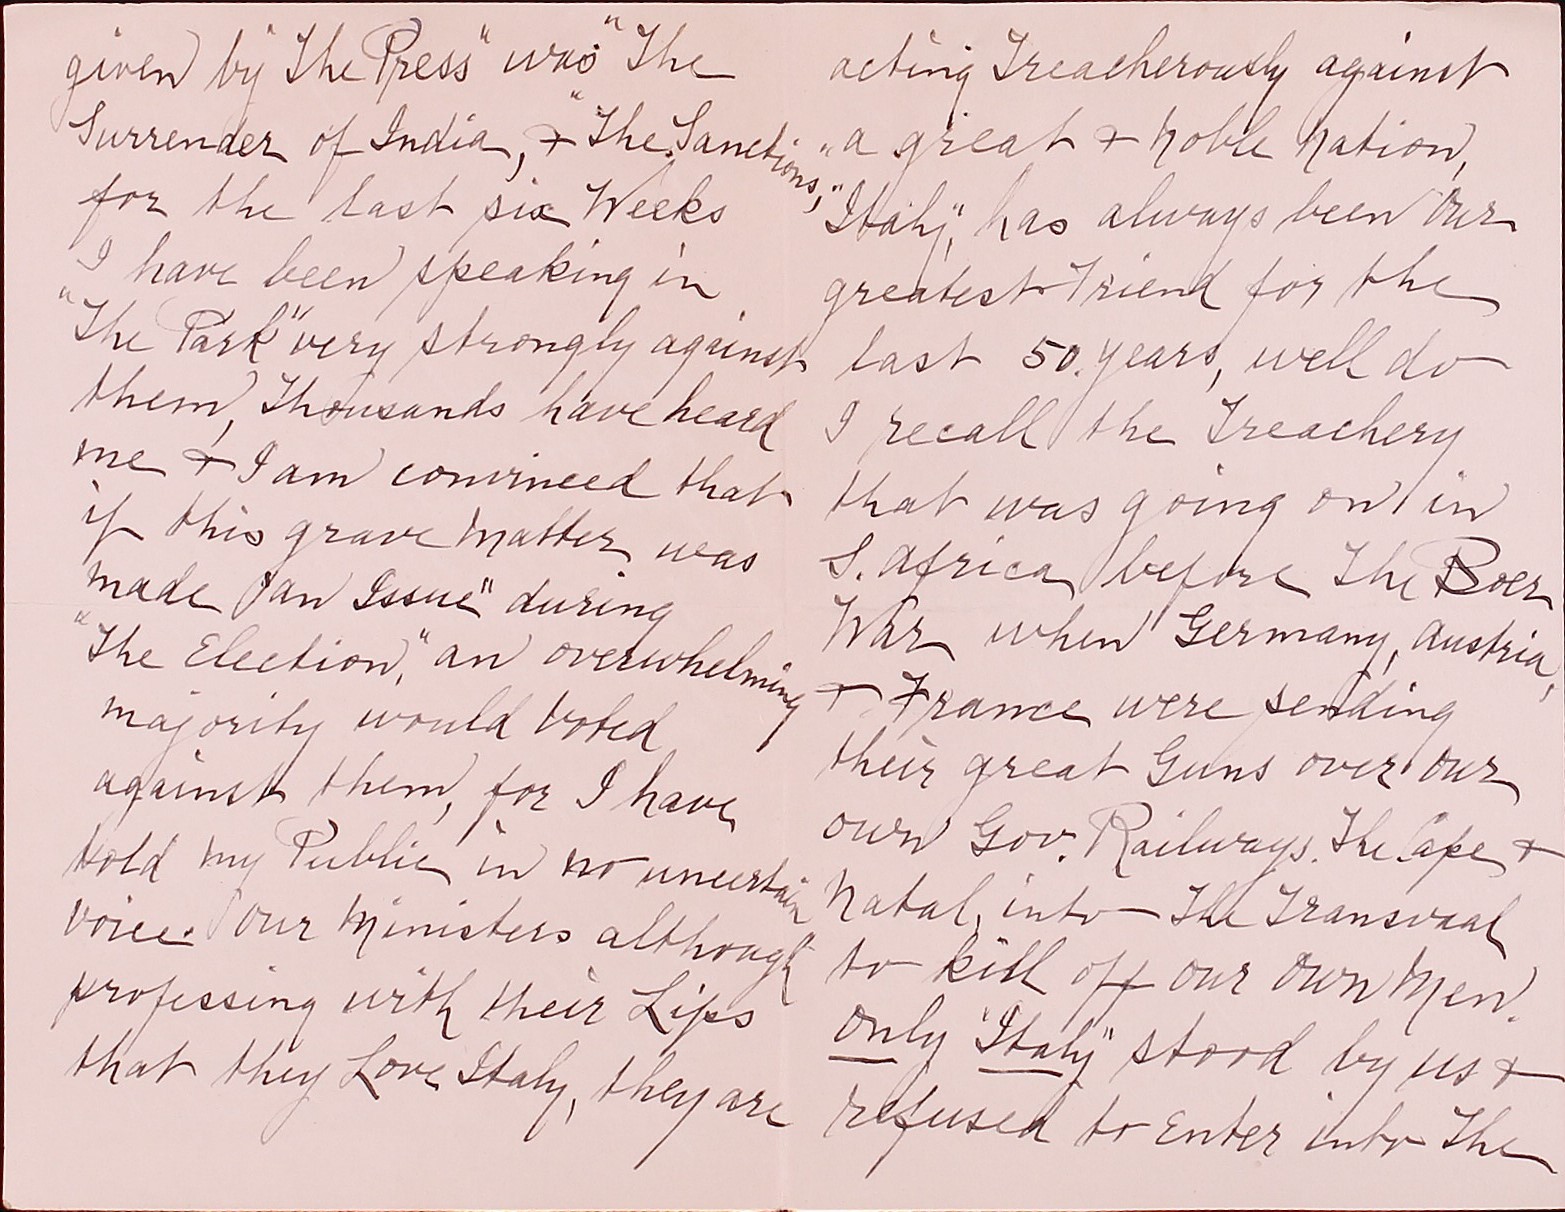 given by "The Press" was "The
Surrender of India, & "The Sanctions,"
for the last six Weeks
I have been speaking in
"The Park" very strongly against
them, Thousands have heard
me & I am convinced that
if this grave Matter was
made "an Issue" during
"The Election," an overwhelming
majority would voted
against them, for I have
told my Public in no uncertain
voice. Our Ministers although
professing with their Lips
that they Love Italy, they are
acting Treacherously against
"a great & Noble Nation,
"Italy", has always been Our
greatest Friend for the
last 50. years, well do
I recall the Treachery
that was going on in
S. Africa before The Boer
War when Germany, Austria,
& France were sending
their great Guns over our
own Gov. Railways. The Cape &
Natal, into The Transvaal
to kill off our own Men.
Only "Italy" stood by us &
refused to Enter into The